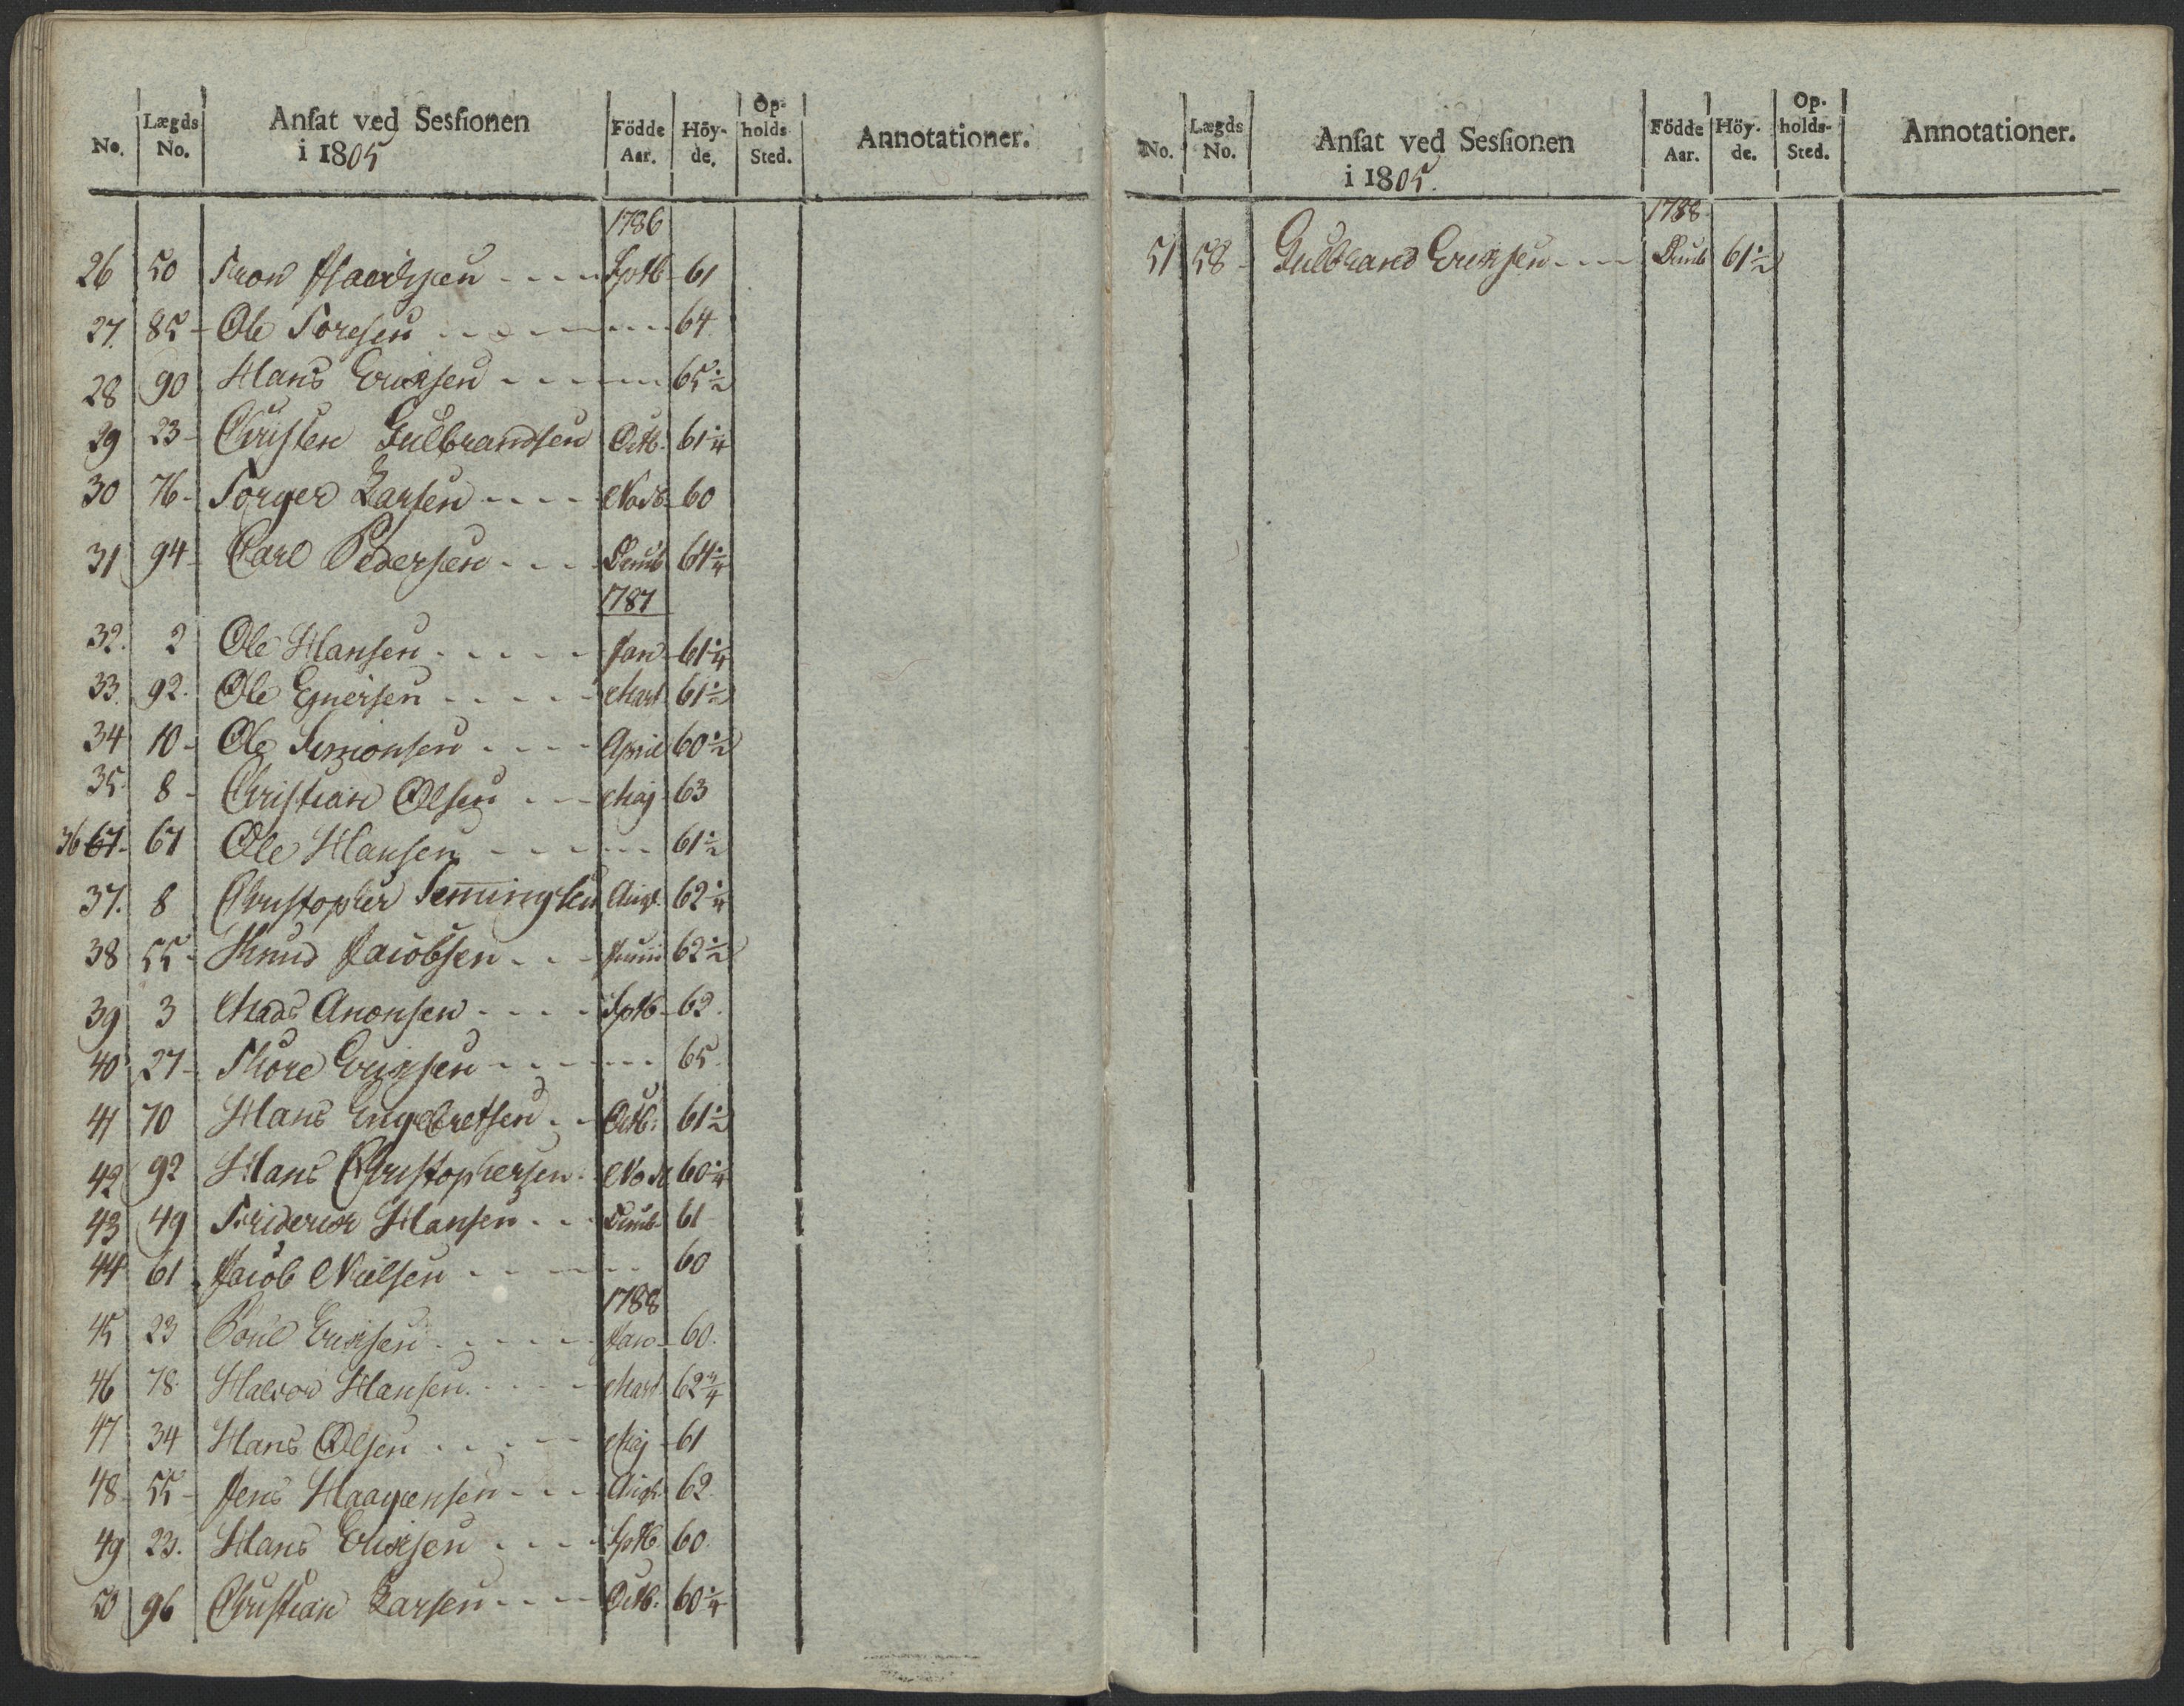 No. Lægds No. Ansat ved Sessionen i 1805 Födde Aar. Höyde. Opholds Sted. Annotationer.
1786
26 50 Tron Septb 61
27. 85 Ole Toresen 64
28 90 Hans Ericksen 65½
29 23 Christen Gulbrandsen Octb. 61¼
30 76 Torger Larsen Novb 60
31 94 Carl Pedersen Decmb 64¼
1787
32. 2 Ole Hansen Jan 61¼
33. 92. Ole Egnersen Mart 61½
34 10 Ole Simonsen April 60½
35. 8 Christian Olsen Maj 63
36 67 67 Ole Hansen 61½
37. 8 Christopher Semingsen Augt. 62¼
38 55 Knud Jacobsen Junii 62½
39 3 Mads Anonsen Septb 62.
40 27 Thore Ericksen 65.
41 70 Hans Engebretsen Octb. 61½
42 92 Hans Christophersen Novb 60¼
43 49 Friderick Hansen Decmb 61
44 61 Jacob Nielsen 60
1788
45 23 Poul Ericksen Jan 60.
46 78. Halvor Hansen Mart 62¾
47 34 Hans Olsen Maj 61
48 55 Jens Haagensen Augt. 62
49 23. Hans Ericksen Septb 60
50 96 Christian Larsen Octb. 60¼
No. Lægds No. Ansat ved Sessionen i 1805. Födde Aar. Höyde. Opholds-Sted. Annotationer.
1788
51 58 Gulbrand Ericksen Decmb 61½